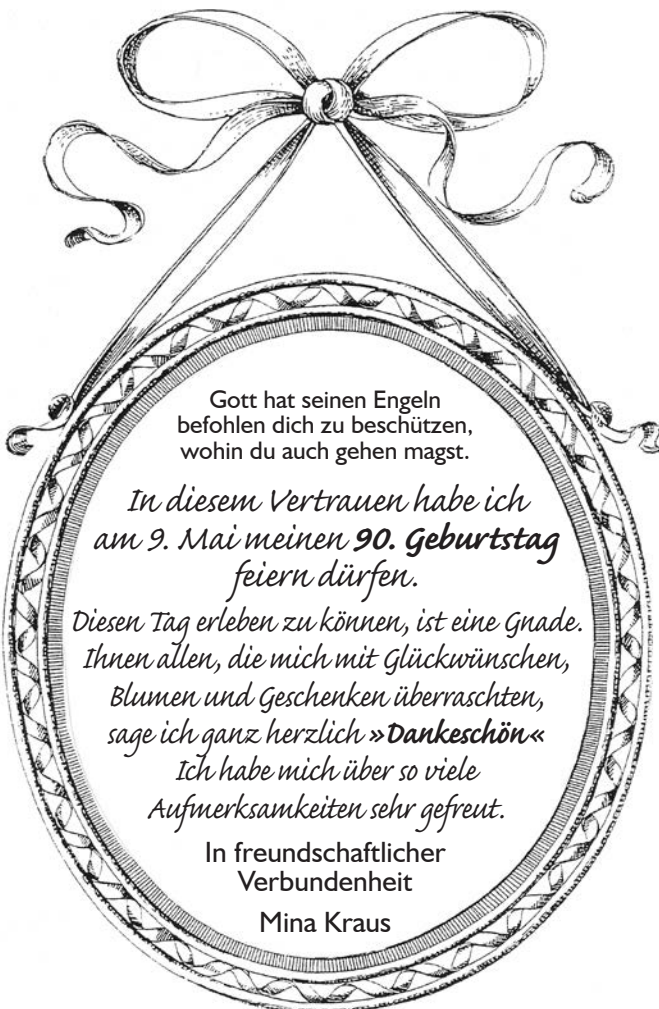 Gott hat seinen Engeln
befohlen dich zu beschützen,
wohin du auch gehen magst.
In diesem Vertrauen habe ich
am 9. Mai meinen 90. Geburtstag
feiern dürfen.
Diesen Tag erleben zu können, ist eine Gnade.
Ihnen allen, die mich mit Glückwünschen,
Blumen und Geschenken überraschten,
sage ich ganz herzlich »Dankeschön«
Ich habe mich über so viele
Aufmerksamkeiten sehr gefreut.
In freundschaftlicher
Verbundenheit
Mina Kraus